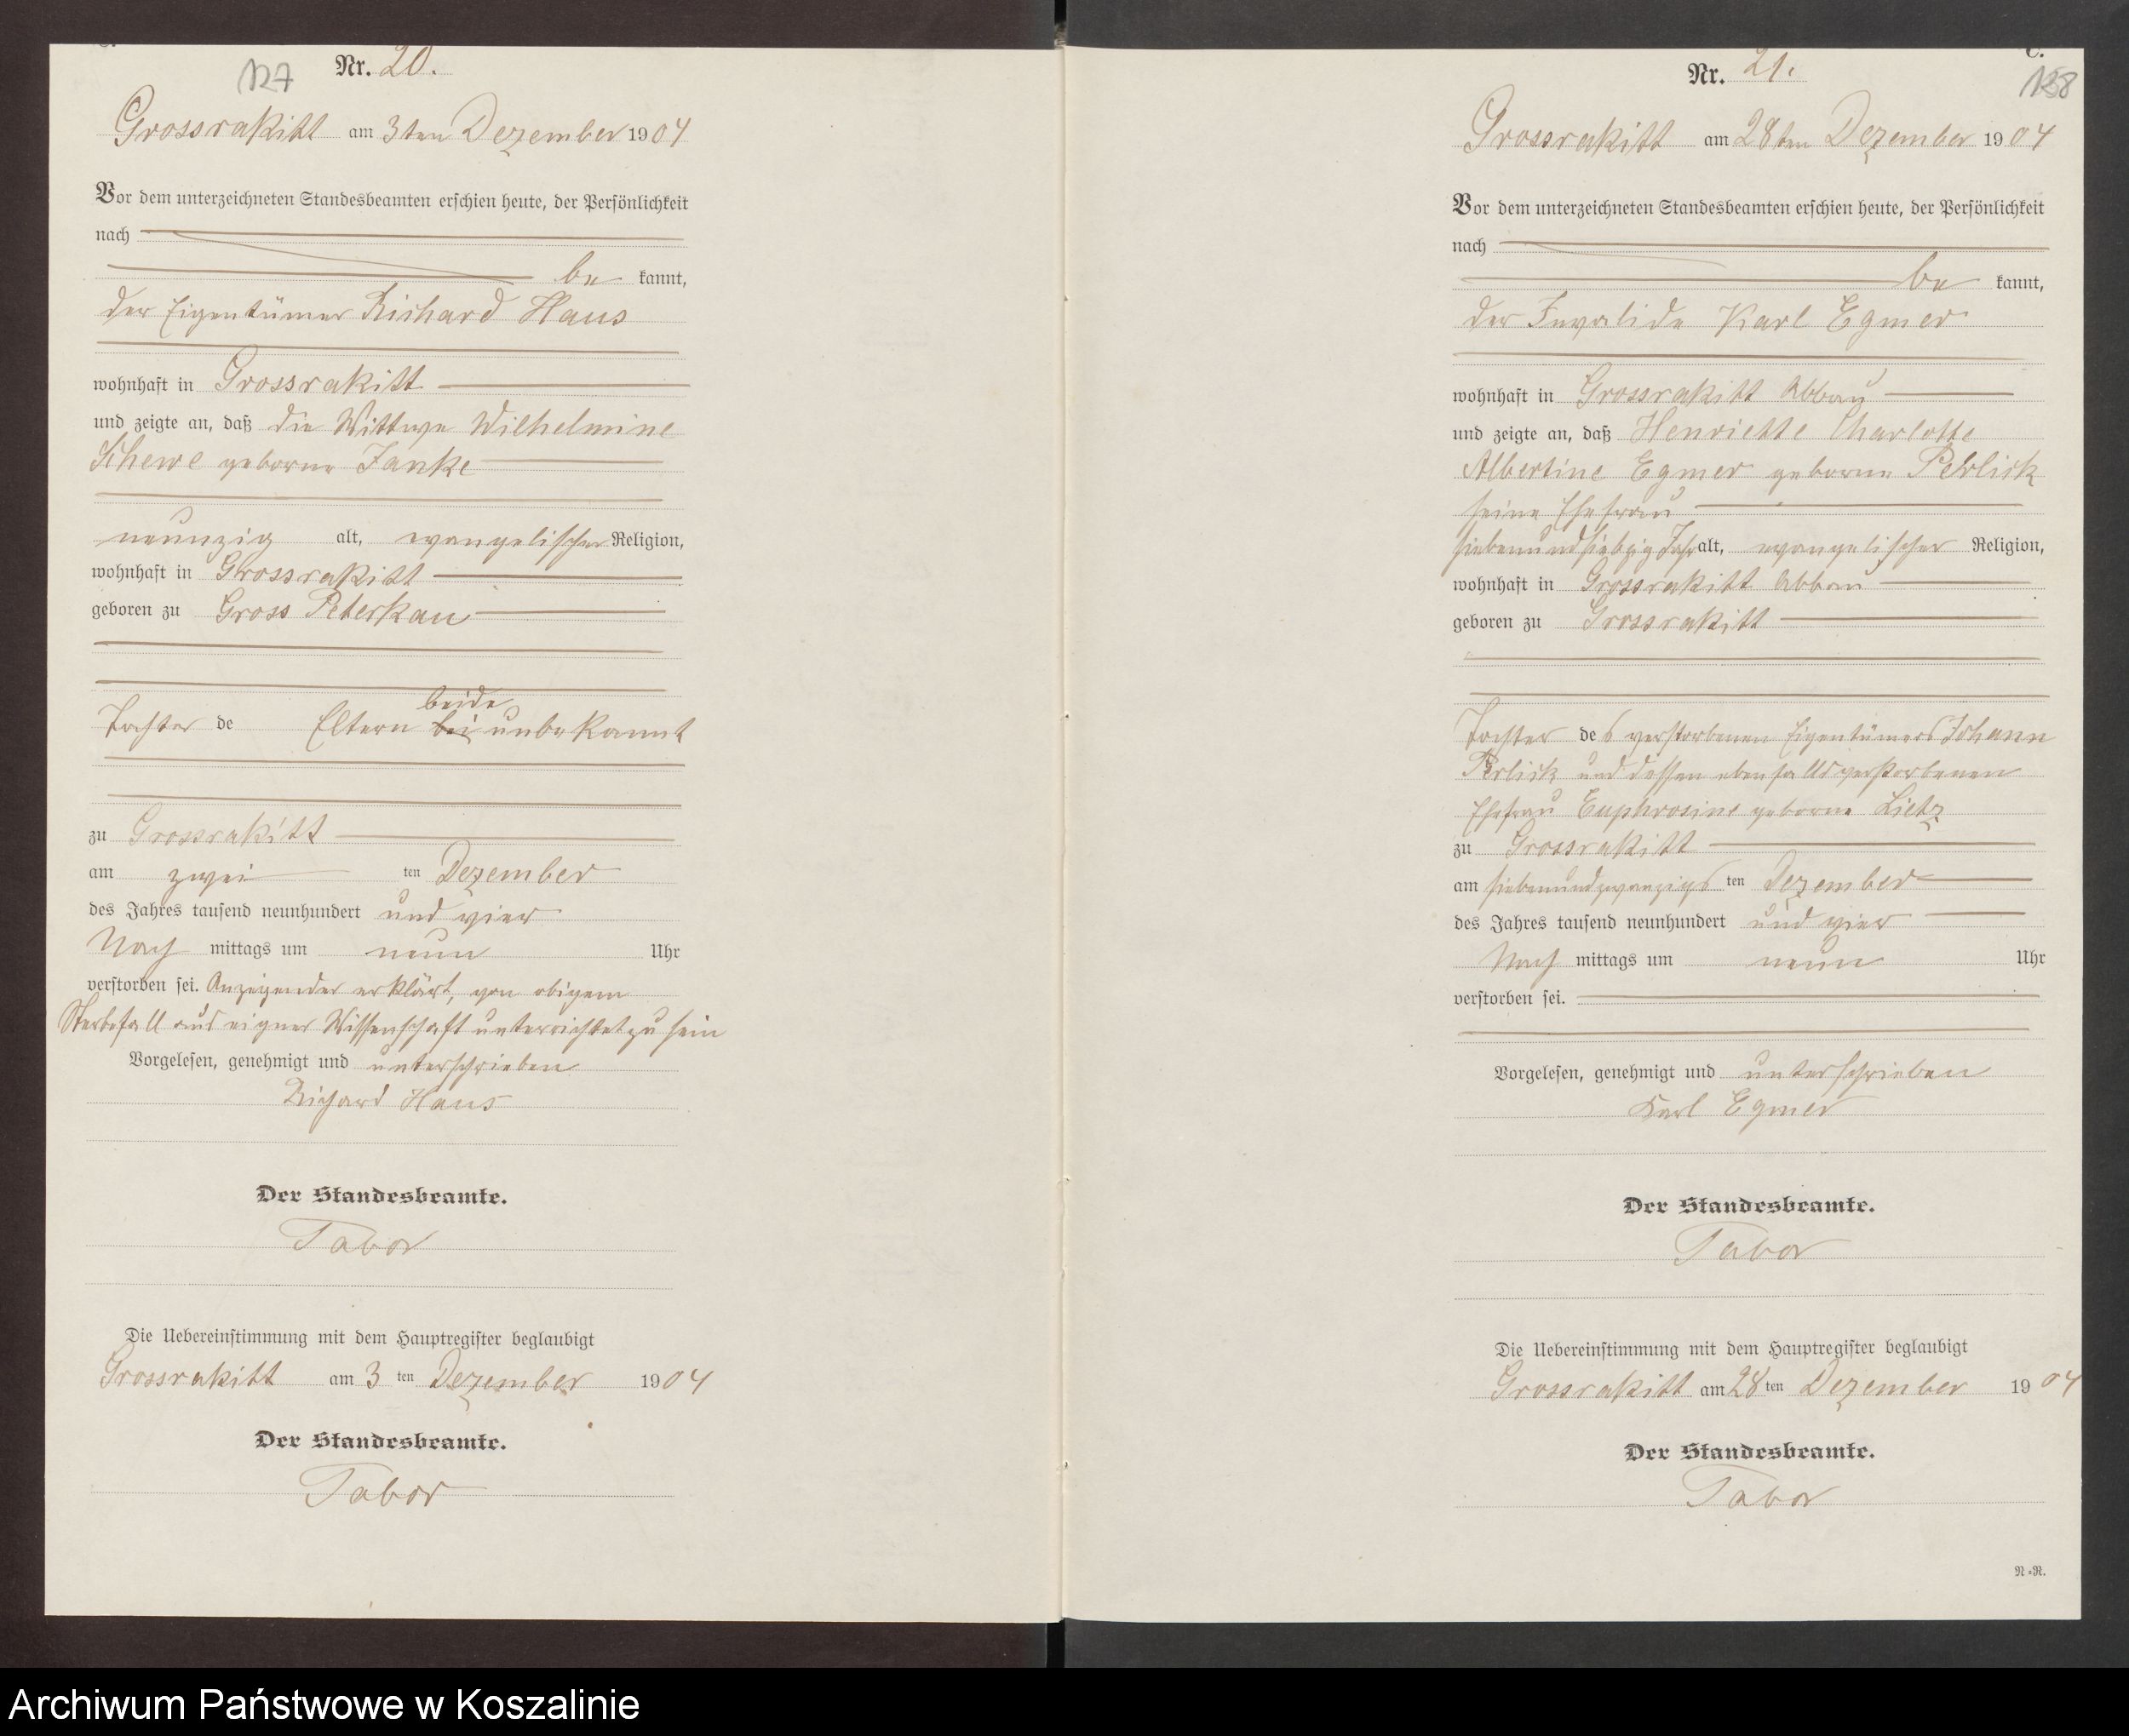 127
Nr. 20.
Grossrakitt am 3ten Dezember 1904
Vor dem unterzeichneten Standesbeamten erschien heute, der Persönlichkeit
nach
be kannt,
der Eigentümer Richard Haus
wohnhaft in Grossrakitt
und zeigte an, daß die Wittwe Wilhelmine
Schewe geborne Janke
neunzig alt, evangelischer Religion,
wohnhaft in Grossrakitt
geboren zu Gross Peterkau
beide
Tochter de Eltern bei unbekannt
zu Grossrakitt
am zwei ten Dezember
des Jahres tausend neunhundert und vier
Nach mittags um neun Uhr
verstorben sei. Anzeigender erklärt, von obigem
Sterbefall aus eigner Wissenschaft unterrichtet zu sein
Vorgelesen, genehmigt und unterschrieben
Richard Haus
Der Standesbeamte.
Tabor
Die Uebereinstimmung mit dem Hauptregister beglaubigt
Grossrakitt am 3 ten Dezember 1904
Der Standesbeamte.
Tabor
C.
Nr. 21.
128
Grossrakitt am 28ten Dezember 1904
Vor dem unterzeichneten Standesbeamten erschien heute, der Persönlichkeit
nach
be kannt,
der Invalide Karl Egmer
wohnhaft in Grossrakitt Abbau
und zeigte an, daß Henriette Charlotte
Albertine Egmer geborne Perlick
seine Ehefrau
siebenundsiebzig Jahr alt, evangelischer Religion,
wohnhaft in Grossrakitt Abbau
geboren zu Grossrakitt
Tochter des verstorbenen Eigentümers Johann
Perlick und dessen ebenfalls verstorbenen
Ehefrau Euphrosine geborne Lietz
zu Grossrakitt
am siebenundzwanzigs ten Dezember
des Jahres tausend neunhundert und vier
Nach mittags um neun Uhr
verstorben sei.
Vorgelesen, genehmigt und unterschrieben
Karl Egmer
Der Standesbeamte.
Tabor
Die Uebereinstimmung mit dem Hauptregister beglaubigt
Grossrakitt am 28 ten Dezember 1904
Der Standesbeamte.
Tabor
N=R.
Archiwum Państwowe w Koszalinie